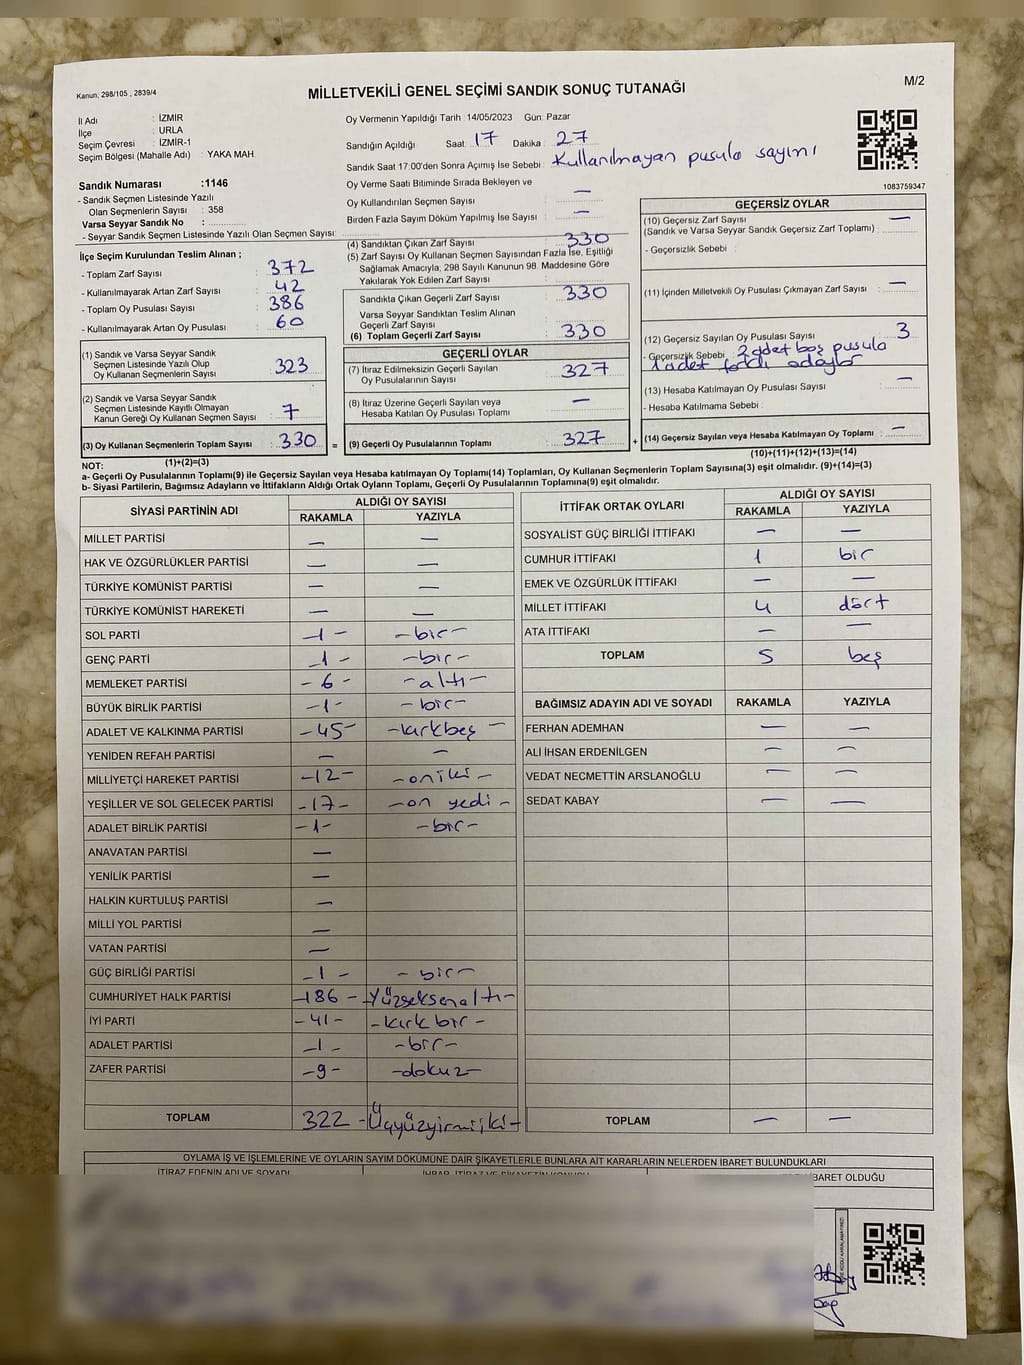 Kanun; 298/105 , 2839/4
MİLLETVEKİLİ GENEL SEÇİMİ SANDIK SONUÇ TUTANAĞI
M/2
İl Adı : İZMİR
İlçe : URLA
Seçim Çevresi : İZMİR-1
Seçim Bölgesi (Mahalle Adı) : YAKA MAH.
Sandık Numarası :1146
- Sandık Seçmen Listesinde Yazılı
Olan Seçmenlerin Sayısı : 358
Varsa Seyyar Sandık No :
- Seyyar Sandık Seçmen Listesinde Yazılı Olan Seçmen Sayısı:
Oy Vermenin Yapıldığı Tarih :14/05/2023 Gün: Pazar
Sandığın Açıldığı Saat: 17 Dakika : 27
Sandık Saat 17:00'den Sonra Açımış İse Sebebi : Kullanılmayan pusula sayımı
Oy Verme Saati Bitiminde Sırada Bekleyen ve
Oy Kullandırılan Seçmen Sayısı : —
Birden Fazla Sayım Döküm Yapılmış İse Sayısı : —
1083759347
İlçe Seçim Kurulundan Teslim Alınan ;
- Toplam Zarf Sayısı : 372
- Kullanılmayarak Artan Zarf Sayısı : 42
- Toplam Oy Pusulası Sayısı : 386
- Kullanılmayarak Artan Oy Pusulası : 60
(1) Sandık ve Varsa Seyyar Sandık
Seçmen Listesinde Yazılı Olup
Oy Kullanan Seçmenlerin Sayısı : 323
(2) Sandık ve Varsa Seyyar Sandık
Seçmen Listesinde Kayıtlı Olmayan
Kanun Gereği Oy Kullanan Seçmen Sayısı : 7
(3) Oy Kullanan Seçmenlerin Toplam Sayısı : 330 =
(1)+(2)=(3)
(4) Sandıktan Çıkan Zarf Sayısı : 330
(5) Zarf Sayısı Oy Kullanan Seçmen Sayısından Fazla İse, Eşitliği
Sağlamak Amacıyla; 298 Sayılı Kanunun 98. Maddesine Göre
Yakılarak Yok Edilen Zarf Sayısı :
Sandıkta Çıkan Geçerli Zarf Sayısı : 330
Varsa Seyyar Sandıktan Teslim Alınan
Geçerli Zarf Sayısı :
(6) Toplam Geçerli Zarf Sayısı : 330
GEÇERLİ OYLAR
(7) İtiraz Edilmeksizin Geçerli Sayılan
Oy Pusulalarının Sayısı : 327
(8) İtiraz Üzerine Geçerli Sayılan veya
Hesaba Katılan Oy Pusulası Toplamı : —
(9) Geçerli Oy Pusulalarının Toplamı : 327 +
GEÇERSİZ OYLAR
(10) Geçersiz Zarf Sayısı : —
(Sandık ve Varsa Seyyar Sandık Geçersiz Zarf Toplamı) :
- Geçersizlik Sebebi :
(11) İçinden Milletvekili Oy Pusulası Çıkmayan Zarf Sayısı : —
(12) Geçersiz Sayılan Oy Pusulası Sayısı : 3
- Geçersizlik Sebebi : 2 adet boş pusula
1 adet farklı adaylar
(13) Hesaba Katılmayan Oy Pusulası Sayısı : —
- Hesaba Katılmama Sebebi :
(14) Geçersiz Sayılan veya Hesaba Katılmayan Oy Toplamı : —
(10)+(11)+(12)+(13)=(14)
NOT:
a- Geçerli Oy Pusulalarının Toplamı(9) ile Geçersiz Sayılan veya Hesaba katılmayan Oy Toplamı(14) Toplamları, Oy Kullanan Seçmenlerin Toplam Sayısına(3) eşit olmalıdır. (9)+(14)=(3)
b- Siyasi Partilerin, Bağımsız Adayların ve İttifakların Aldığı Ortak Oyların Toplamı, Geçerli Oy Pusulalarının Toplamına(9) eşit olmalıdır.
SİYASİ PARTİNİN ADI ALDIĞI OY SAYISI
RAKAMLA YAZIYLA
MİLLET PARTİSİ — —
HAK VE ÖZGÜRLÜKLER PARTİSİ — —
TÜRKİYE KOMÜNİST PARTİSİ — —
TÜRKİYE KOMÜNİST HAREKETİ — —
SOL PARTİ -1- -bir-
GENÇ PARTİ -1- -bir-
MEMLEKET PARTİSİ -6- -altı-
BÜYÜK BİRLİK PARTİSİ -1- -bir-
ADALET VE KALKINMA PARTİSİ -45- -kırkbeş-
YENİDEN REFAH PARTİSİ — —
MİLLİYETÇİ HAREKET PARTİSİ -12- -oniki-
YEŞİLLER VE SOL GELECEK PARTİSİ -17- -on yedi-
ADALET BİRLİK PARTİSİ -1- -bir-
ANAVATAN PARTİSİ —
YENİLİK PARTİSİ —
HALKIN KURTULUŞ PARTİSİ —
MİLLİ YOL PARTİSİ —
VATAN PARTİSİ —
GÜÇ BİRLİĞİ PARTİSİ -1- -bir-
CUMHURİYET HALK PARTİSİ -186- -Yüzseksenaltı-
İYİ PARTİ -41- -kırkbir-
ADALET PARTİSİ -1- -bir-
ZAFER PARTİSİ -9- -dokuz-
TOPLAM 322 -Üçyüzyirmiiki-
İTTİFAK ORTAK OYLARI ALDIĞI OY SAYISI
RAKAMLA YAZIYLA
SOSYALİST GÜÇ BİRLİĞİ İTTİFAKI — —
CUMHUR İTTİFAKI 1 bir
EMEK VE ÖZGÜRLÜK İTTİFAKI — —
MİLLET İTTİFAKI 4 dört
ATA İTTİFAKI — —
TOPLAM 5 beş
BAĞIMSIZ ADAYIN ADI VE SOYADI RAKAMLA YAZIYLA
FERHAN ADEMHAN — —
ALİ İHSAN ERDENİLGEN — —
VEDAT NECMETTİN ARSLANOĞLU — —
SEDAT KABAY — —
TOPLAM — —
OYLAMA İŞ VE İŞLEMLERİNE VE OYLARIN SAYIM DÖKÜMÜNE DAİR ŞİKAYETLERLE BUNLARA AİT KARARLARIN NELERDEN İBARET BULUNDUKLARI
İTİRAZ EDENİN ADI VE SOYADI İHBAR, İTİRAZ VE ŞİKAYETİN KONUSU İBARET OLDUĞU